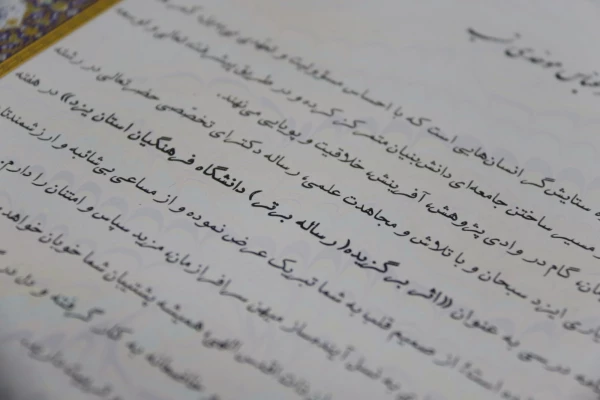 موحدی نسب
ستایش‌گر انسان‌هایی است که با احساس مسؤولیت و تعهدی
مسیر ساختن جامعه‌ای دانش‌بنیان متمرکز کرده و در طریق پیشرفت، تعالی و توسعه
گام در وادی پژوهش، آفرینش، خلاقیت و پویایی می‌نهند.
یاری ایزد سبحان و با تلاش و مجاهدت علمی، رساله دکترای تخصصی حضرتعالی در رشته
درسی به عنوان «اثر برگزیده (رساله برتر) دانشگاه فرهنگیان استان یزد» در هفته
است؛ از صمیم قلب به شما تبریک عرض نموده و از مساعی بی‌شائبه و ارزشمندتان
به نسل آینده‌ساز میهن سرافرازمان، مزید سپاس و امتنان را دارم.
اقدس الهی؛ همیشه پشتیبان شما خوبان خواهد
به کار گرفته و دل در